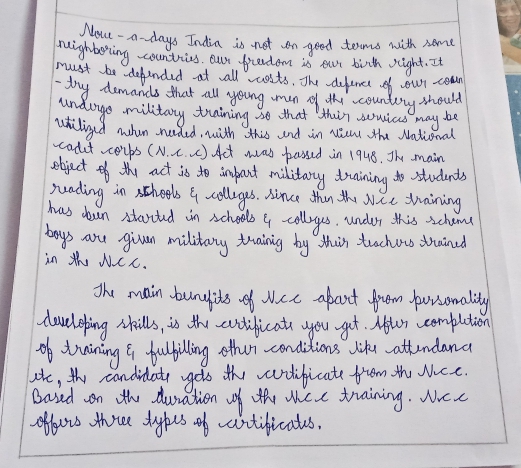 Now-a-days India is not on good terms with some
neighboring countries. our freedom is our birth right. It
must be defended at all costs. The defence of our coun
-try demands that all young men of the countery should
undergo military training so that their services may be
utilized when needed. with this end in view the National
cadet corps (N.C.C) Act was passed in 1948. The main
object of the act is to impart military training to students
reading in schools & colleges. since then the NCC training
has been started in schools & colleges. under this scheme
boys are given military trainig by their teachers trained
in the NCC.
The main benefits of NCC apart from personality
developing skills, is the certificate you get. After completion
of training & fulfilling other conditions like attendance
etc, the candidate gets the certificate from the NCC.
Based on the duration of the NCC training. NCC
offers three types of certificates.